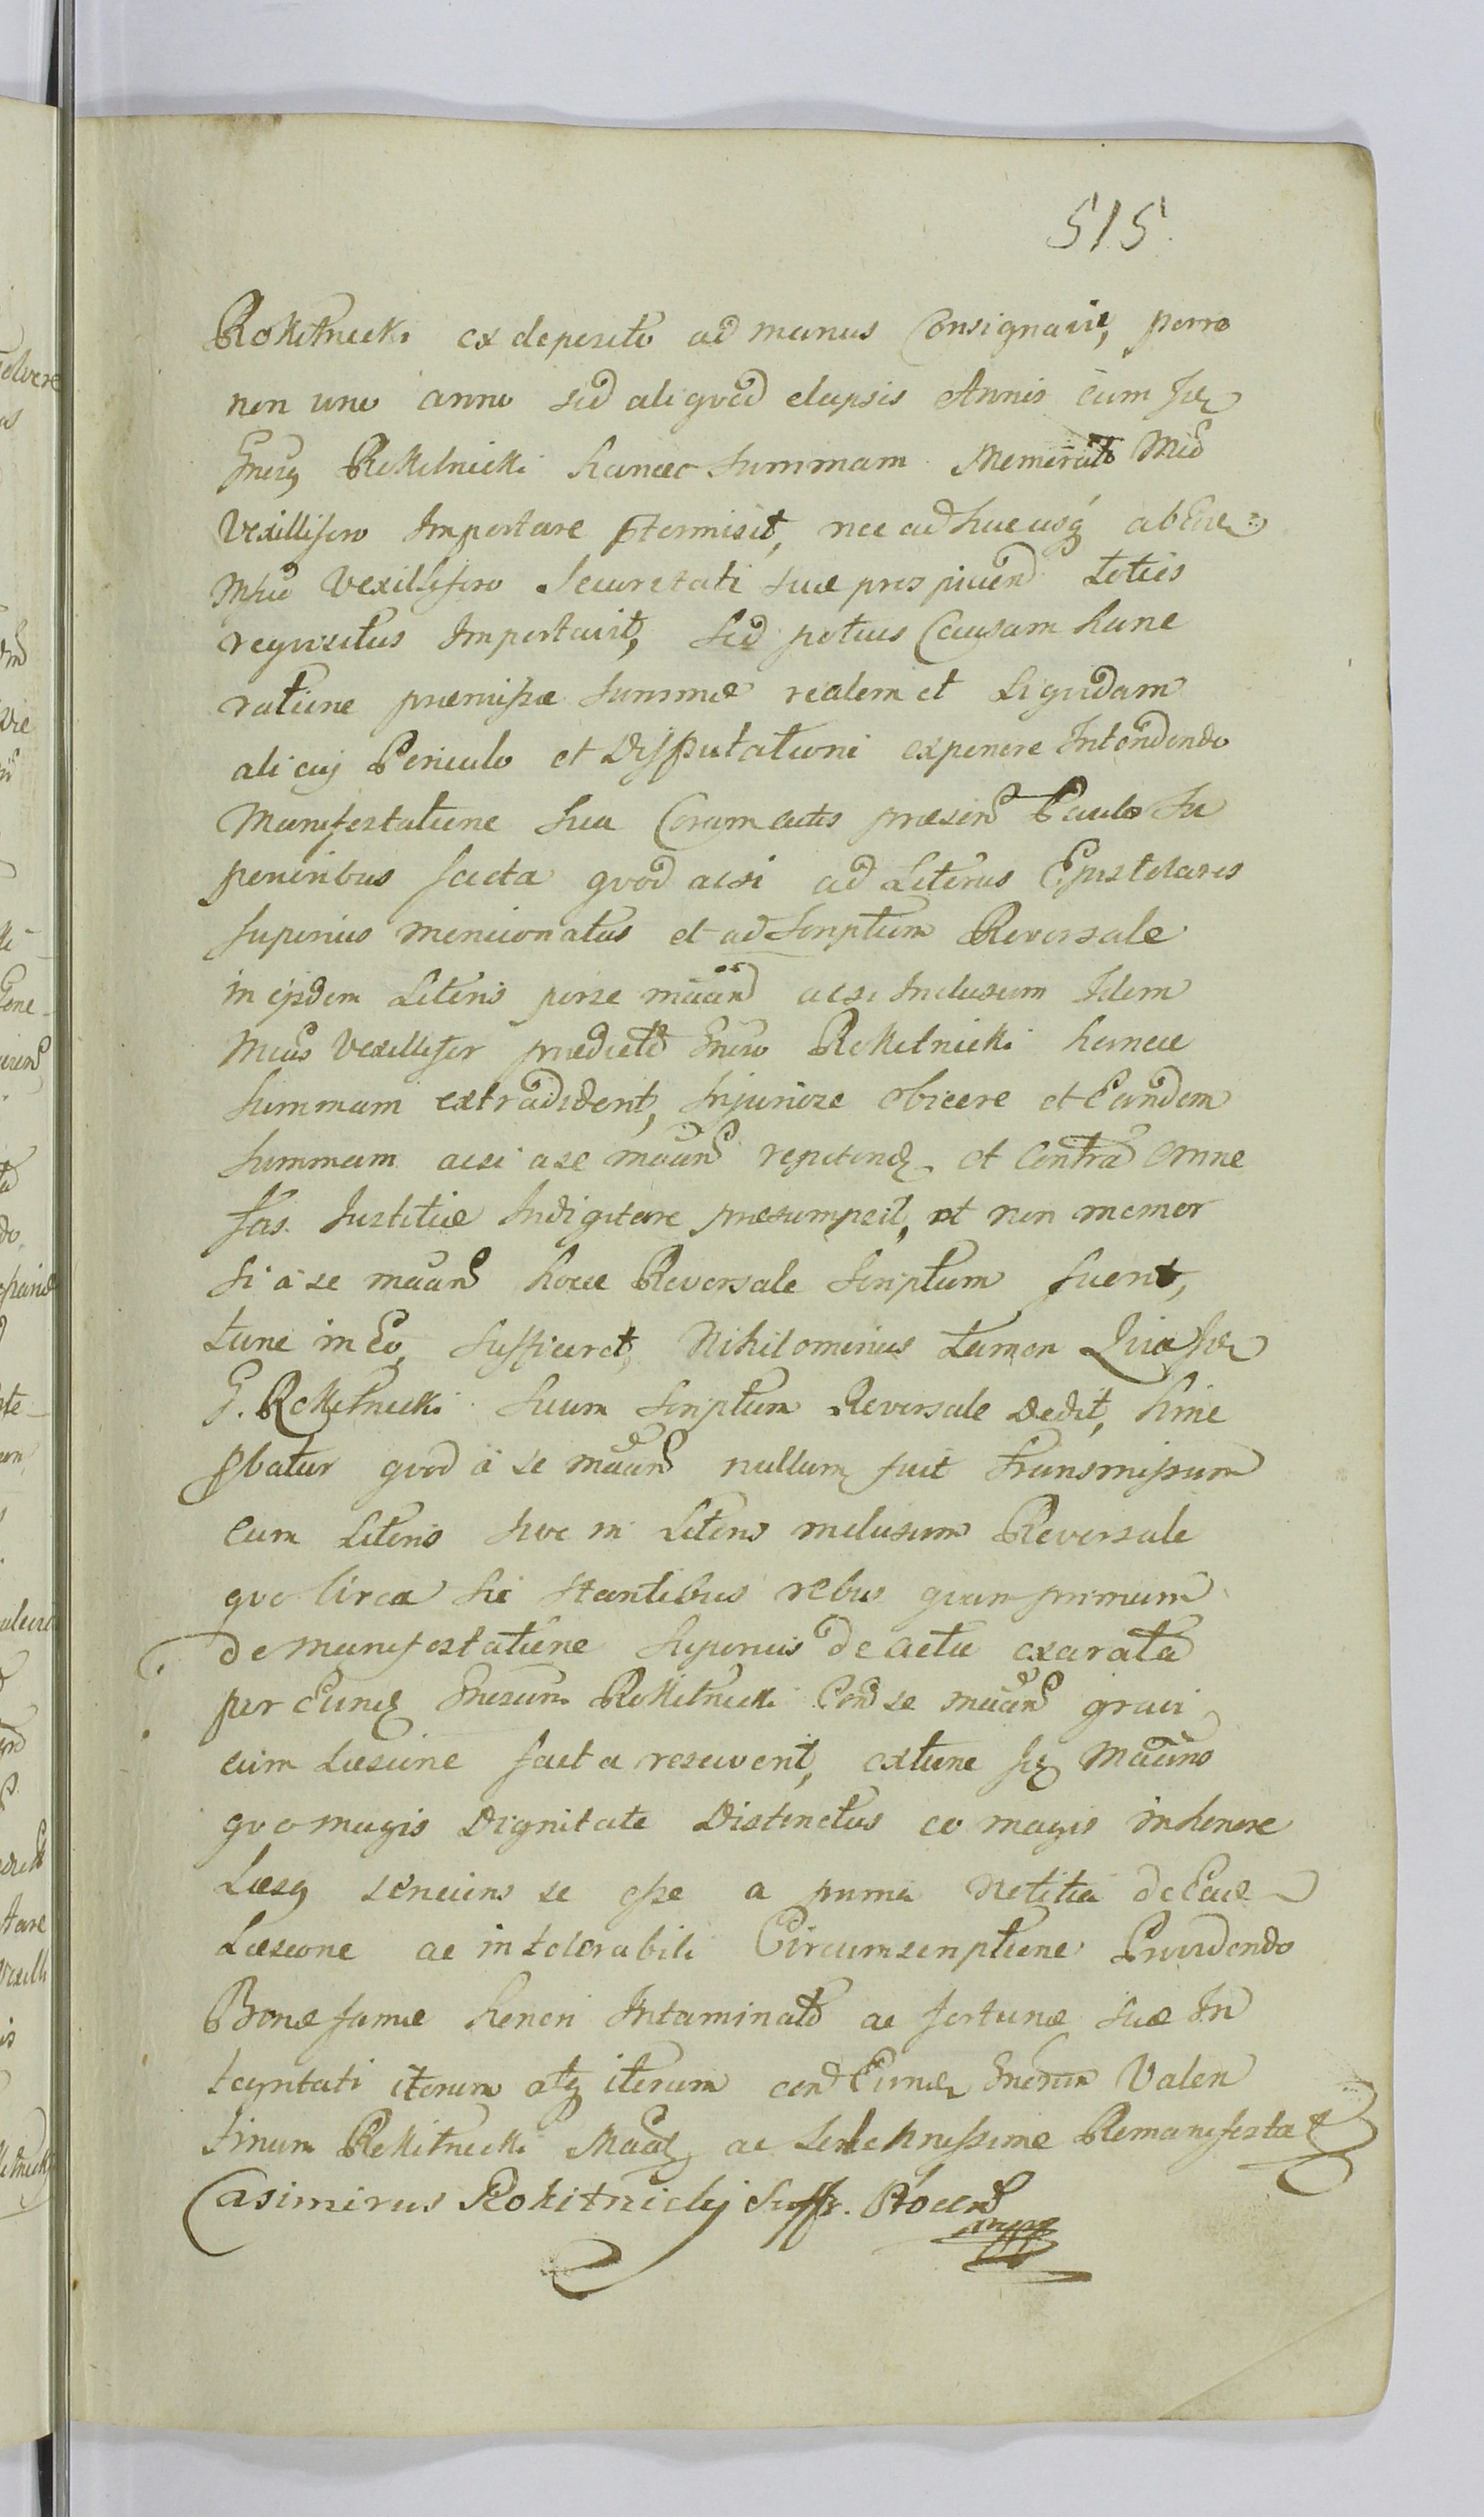 515.
Rokitnicki ex deposito ad manus Consignavit, porro
non uno anno sed aliqvod elapsis Annis cum
Gnrsus Rokitnicki hancce Summam Memorato Mfco
Vexillifero Importare ptermisit, nec ad huc usq ab
Mfco Vexillifero Securitati suae prospiciend toties
reqvisitus Importavit, Sed potius Causam hanc
ratione praemissae Summae realem et Liqvidam
alicuj Periculo et Disputationi exponere Intendendo
Manifestatione sua Coram actis praesend Paulo Su
perioribus facta qvod acsi ad Literas Epistolares
Superius mencionatas et ad Scriptum Reversale
in ijsdem Literis per se maand acsi Inclusum Idem
Mfcus Vexillifer praedicto Gnroso Rokitnicki hancce
Summam extradiderit, Injuriose Obicere et Eandem
Summam acsi a se maand repetend et Contra Omne
fas Justitiae Indigitare praesumpsit, et non memor
si a se maand hocce Reversale Scriptum fuerit,
tunc in Eo Sufficeret, Nihilominus tamen Qvia
G. Rokitnicki Suum Scriptum Reversale Dedit, hinc
pbatur qvod a se maand nullum fuit Transmissum
cum Literis hoc in Literis inclusum Reversale
qvo Circa Sic Stantibus rebus qvam primum
de Manifestatione Superius de actu exarata
per Eund Gnrosum Rokitnicki Con se maand gravi
cum Laesione facta resciverit, extunc
qvo magis Dignitate Distinctus eo magis in honore
Laesq senciens se esse a prima Notitia de Ead
Laesione ac intolerabili Circumscriptione Providendo
Bonae famae honori Intaminato ac fortunae Suae In
tegritati iterum atq iterum con Eund Gnrosum Valen
tinum Rokitnicki ac Solennissime Remanifestat
Casimirus Rokitnickj Suffr. Plocens
mppa